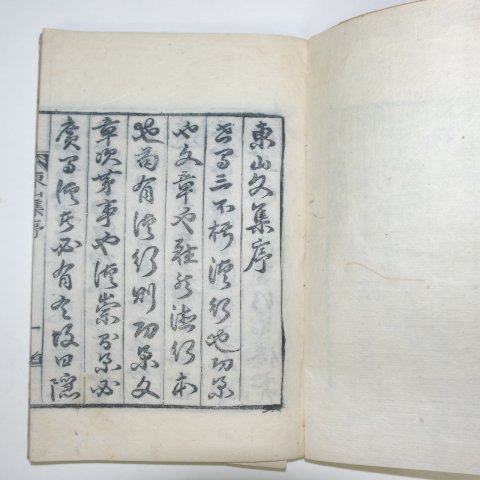 東山文集序
三不朽德行也功業
也文章也雖然德行本
也苟有德行則功業文
章次第事也德崇業必
廣德者必有言故曰隱
東山集序 一